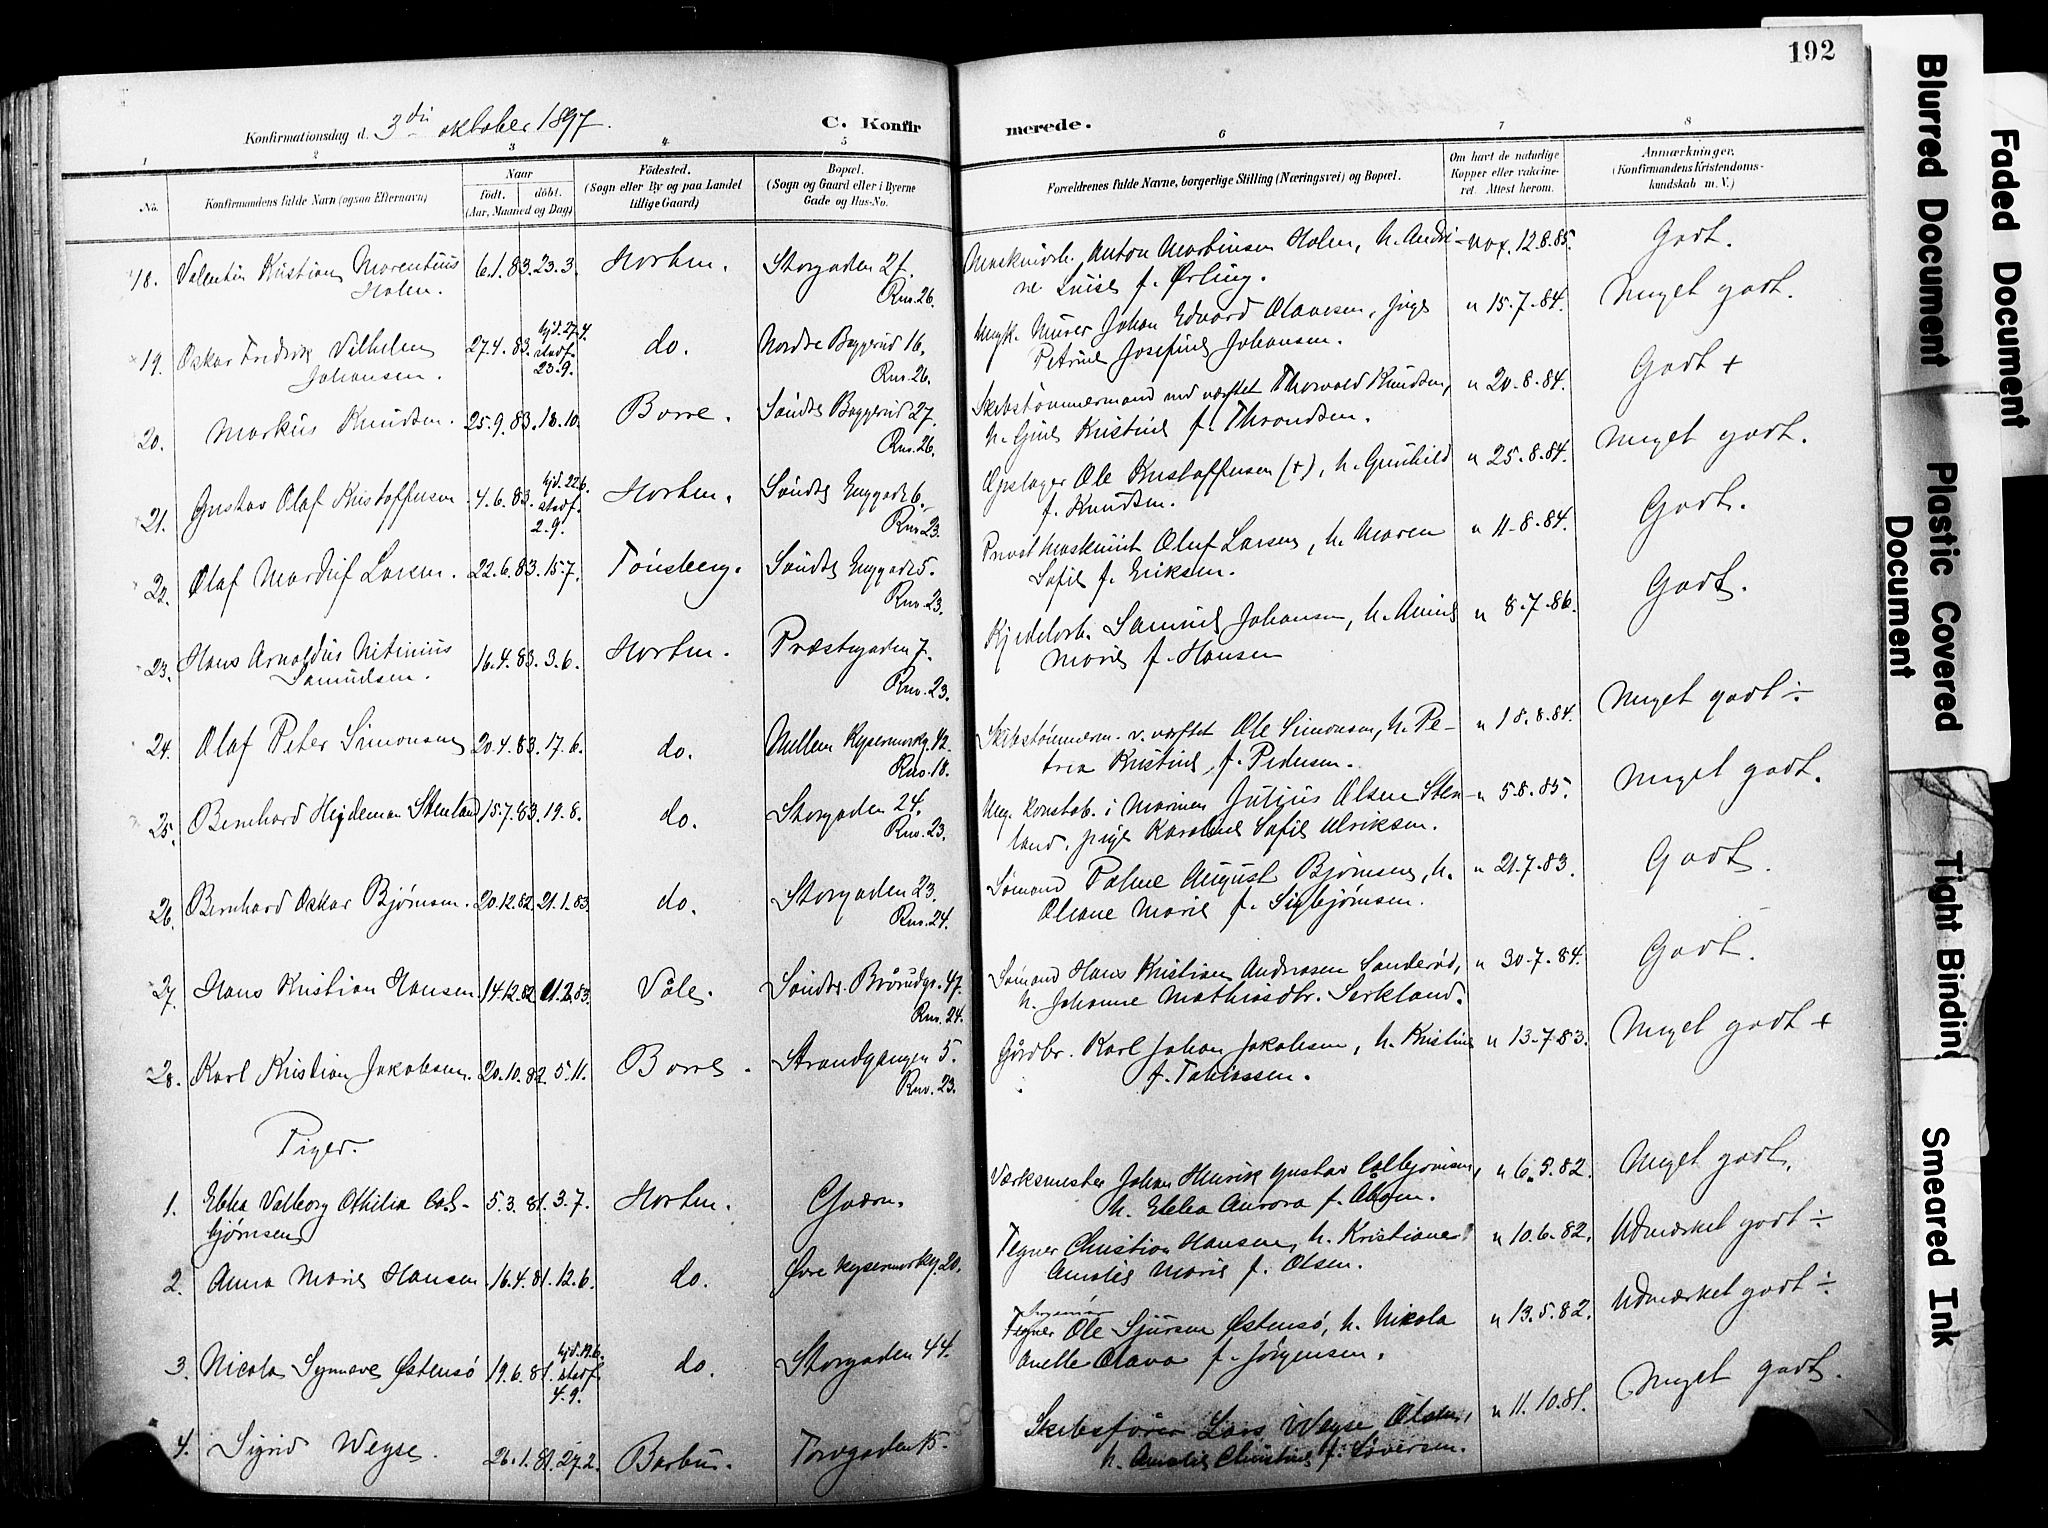 192
Konfirmationsdag d. 3die oktober 1897.
C. Konfirmerede.
1 2 3 4 5 6 7 8
No.
Konfirmandens fulde Navn (ogsaa Efternavn)
Naar
født. døbt.
(Aar, Maaned og Dag)
Fødested.
(Sogn eller By og paa Landet
tillige Gaard)
Bopæl.
(Sogn og Gaard eller i Byerne
Gade og Hus-No.
Forældrenes fulde Navne, borgerlige Stilling (Næringsvei) og Bopæl.
Om havt de naturlige
Kopper eller vaccine-
ret. Attest herom.
Anmærkninger.
(Konfirmandens Kristendoms-
kundskab m. V.)
18. Valentin Kristian Morentius 6.1.83. 23.3. Horten. Storgaden 21. Maskinarb. Anton Martinsen Holm, h. Andri- vax. 12.8.85. Godt.
Holm. Rnv. 26. ne Luise f. Ørling.
19. Oskar Fredrik Vilhelm 27.4.83. hjd. 27.4. stadf. 23.9. do. Nordre Baggerud 16. Ungk. Murer Johan Edvard Olavesen, pige " 15.7.84. Meget godt.
Johansen. Rnv. 26. Petrine Josefine Johansen.
20. Markus Knudsen. 25.9.83. 18.10. Borre. Søndre Baggerud 27. Skibstømmermand ved værftet Thorvald Knudsen, " 20.8.84. Godt +
Rnv. 26. h. Gine Kristine f. Throndsen.
21. Gustav Olaf Kristoffersen 4.6.83. hjd. 22.6. stadf. 2.9. Horten. Søndre Enggade 6. Opslager Ole Kristoffersen (+), h. Gunhild " 25.8.84. Meget godt.
Rnv. 23. f. Knudsen.
22. Olaf Marduf Larsen. 22.6.83. 15.7. Tønsberg. Søndre Enggade 5. Privat Maskinist Oluf Larsen, h. Maren " 11.8.84. Godt.
Rnv. 23. Sofie f. Eriksen.
23. Hans Arnoldus Nitinius 16.4.83. 3.6. Horten. Præstegaden 7. Kjedelarb. Samuel Johansen, h. Anine " 8.7.86. Godt.
Samuelsen. Rnv. 23. Marie f. Hansen
24. Olaf Peter Simonsen 20.4.83. 17.6. do. Mellem Keysemarkg. 42. Skibstømmerm. v. værftet Ole Simonsen, h. Pe- " 18.8.84. Meget godt ÷
Rnv. 18. trea Kristine, f. Pedersen.
25. Bernhard Hejdeman Stenland 15.7.83. 19.8. do. Storgaden 24. Ung. konstab. i Marinen Julius Olsen Sten- " 5.8.85. Meget godt.
Rnv. 23. land, pige Karoline Sofie Ulriksen.
26. Bernhard Oskar Bjørnsen. 20.12.82. 21.1.83. do. Storgaden 23. Sømand Palme August Bjørnsen, h. " 21.7.83. Godt.
Rnv. 24. Oleane Marie f. Sigbjørnsen.
27. Hans Kristian Hansen 14.12.82. 11.2.83. Våle. Søndre Brårudg. 47. Sømand Hans Kristian Andreasen Sanderød, " 30.7.84. Godt.
Rnv. 24. h. Johanne Mathiasdtr. Serkland.
28. Karl Kristian Jakobsen. 20.10.82. 5.11. Borre. Strandgangen 5. Gårdbr. Karl Johan Jakobsen, h. Kristine " 13.7.83. Meget godt +
Rnv. 23. f. Tobiassen.
Piger.
1. Ebba Valborg Othilia Col- 5.3.81. 3.7. Horten. Gaarn. Værksmester Johan Henrik Gustav Colbjørnsen, " 6.5.82. Meget godt.
bjørnsen h. Ebba Aurora f. Åbom.
2. Anna Marie Hansen 16.4.81. 12.6. do. Øvre Keysermarkg. 20. Tegner Christian Hansen, h. Kristiane " 10.6.82. Udmærket godt ÷
Amalie Marie f. Olsen.
3. Nicola Synnøve Østensø 19.6.81. hjd. 19.6. stadf. 4.9. do. Storgaden 44. Ingeniør Tegner Ole Sjursen Østensø, h. Nikola " 13.5.82. Udmærket godt ÷
Anette Olava f. Jørgensen.
4. Sigrid Weyse. 26.1.81. 27.2. Barbu. Torvgaden 15. Skibsfører Lars Weyse Olsen, " 11.10.81. Meget godt.
h. Amalie Christine f. Siversen.
Faded Document
Blurred Document
Plastic Covered
Document
Tight Binding
Smeared Ink